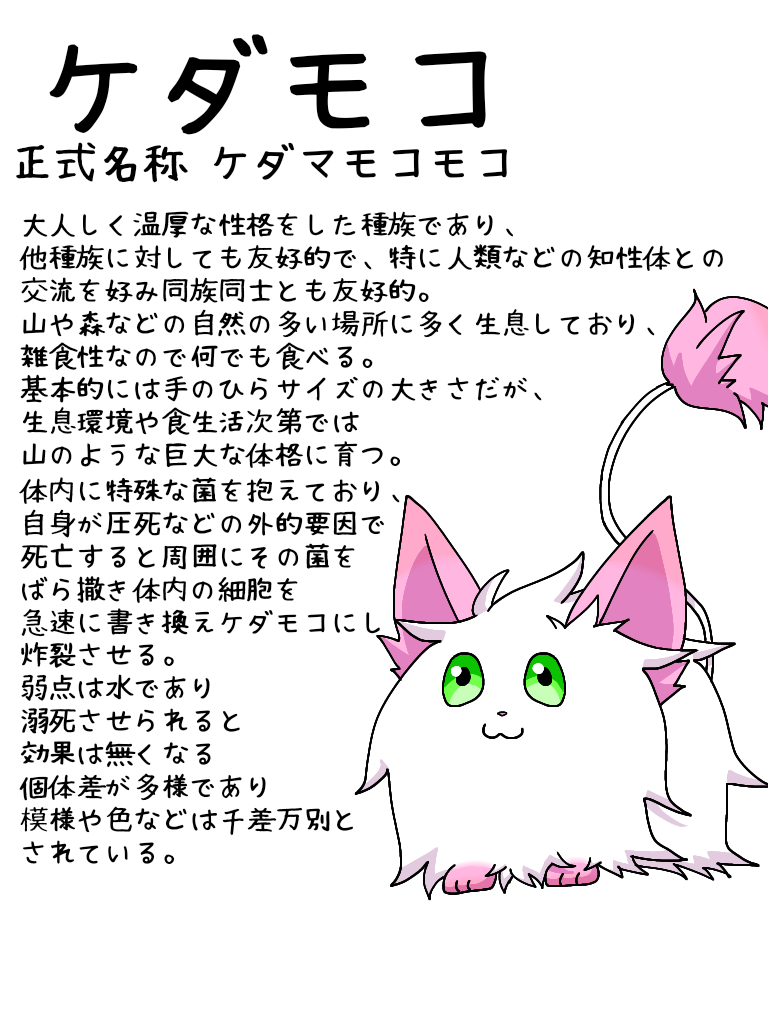 ケダモコ
正式名称 ケダマモコモコ
大人しく温厚な性格をした種族であり、
他種族に対しても友好的で、特に人類などの知性体との
交流を好み同族同士とも友好的。
山や森などの自然の多い場所に多く生息しており、
雑食性なので何でも食べる。
基本的には手のひらサイズの大きさだが、
生息環境や食生活次第では
山のような巨大な体格に育つ。
体内に特殊な菌を抱えており、
自身が圧死などの外的要因で
死亡すると周囲にその菌を
ばら撒き体内の細胞を
急速に書き換えケダモコにし
炸裂させる。
弱点は水であり
溺死させられると
効果は無くなる
個体差が多様であり
模様や色などは千差万別と
されている。